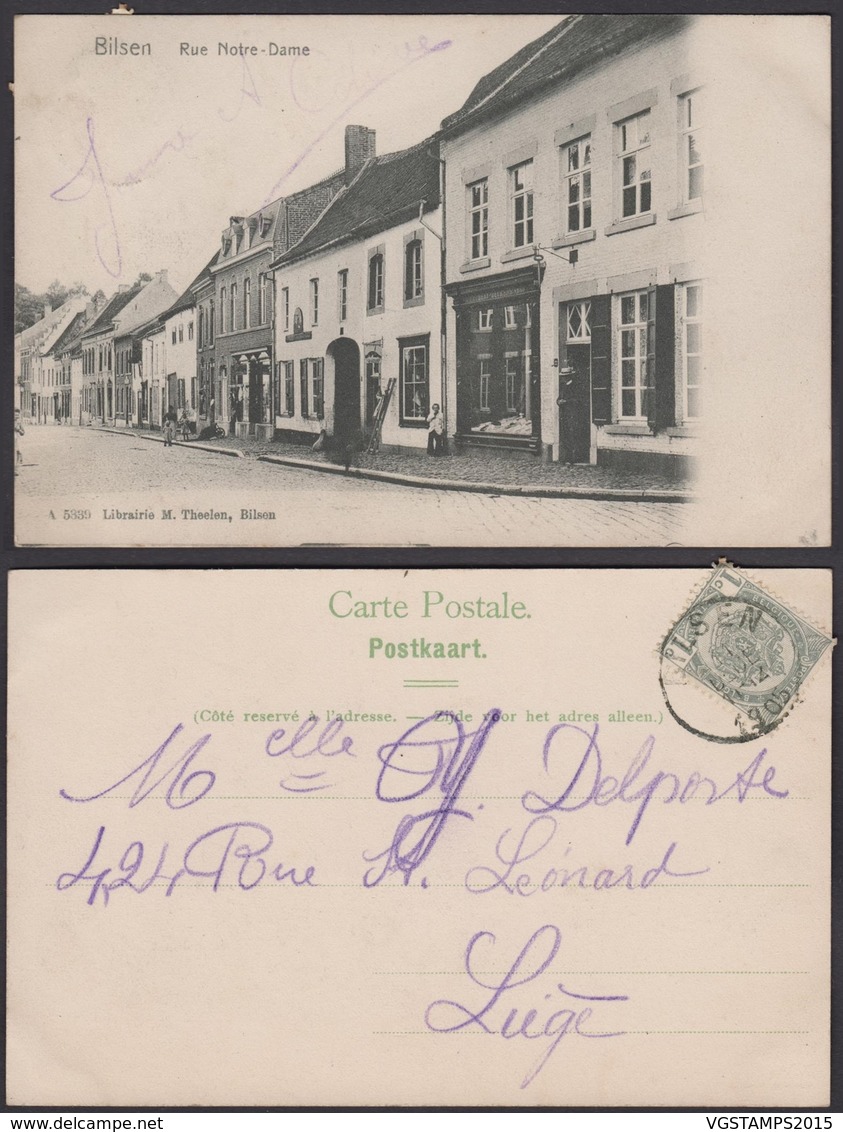 Bilsen Rue Notre-Dame
A 5339 Librairie M. Theelen, Bilsen
Carte Postale.
Postkaart.
(Côté reservé à l'adresse. — Zijde voor het adres alleen.)
BILSEN
1905
Melle Delporte
424 Rue St. Léonard
Liège
VGSTAMPS2015